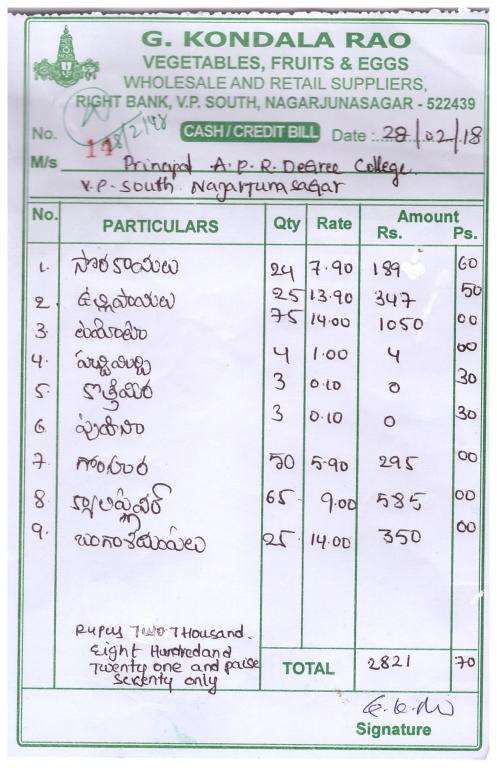 G. KONDALA RAO
VEGETABLES, FRUITS & EGGS
WHOLESALE AND RETAIL SUPPLIERS,
RIGHT BANK, V.P. SOUTH, NAGARJUNASAGAR - 522439
No. 14 CASH / CREDIT BILL Date : 28/02/18
M/s Principal A.P.R. Degree College,
V.P. South. Nagarjunasagar
No. PARTICULARS Qty Rate Amount
Rs. Ps.
1. సొరకాయలు 24 7.90 189 60
2. ఉల్లిపాయలు 25 13.90 347 50
3. టమోటా 75 14.00 1050 00
4. పచ్చిమిర్చి 4 1.00 4 00
5. కొత్తిమిర 3 0.10 0 30
6. పుదీనా 3 0.10 0 30
7. గోంగూర 50 5.90 295 00
8. క్యాలిఫ్లవర్ 65 9.00 585 00
9. బంగాళదుంపలు 25 14.00 350 00
Rupees Two Thousand.
Eight Hundred and
Twenty one and paise
Seventy only
TOTAL 2821 70
Signature